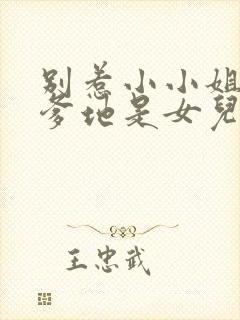 别惹小小姐
爹地是女兒
王忠武